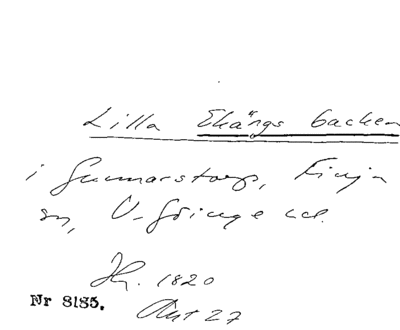 Lilla Ekängs backen
i Gunnarstorp, Finja
sn, V-Göinge hd.
Hf. 1820
Akt 27
Nr 8185.